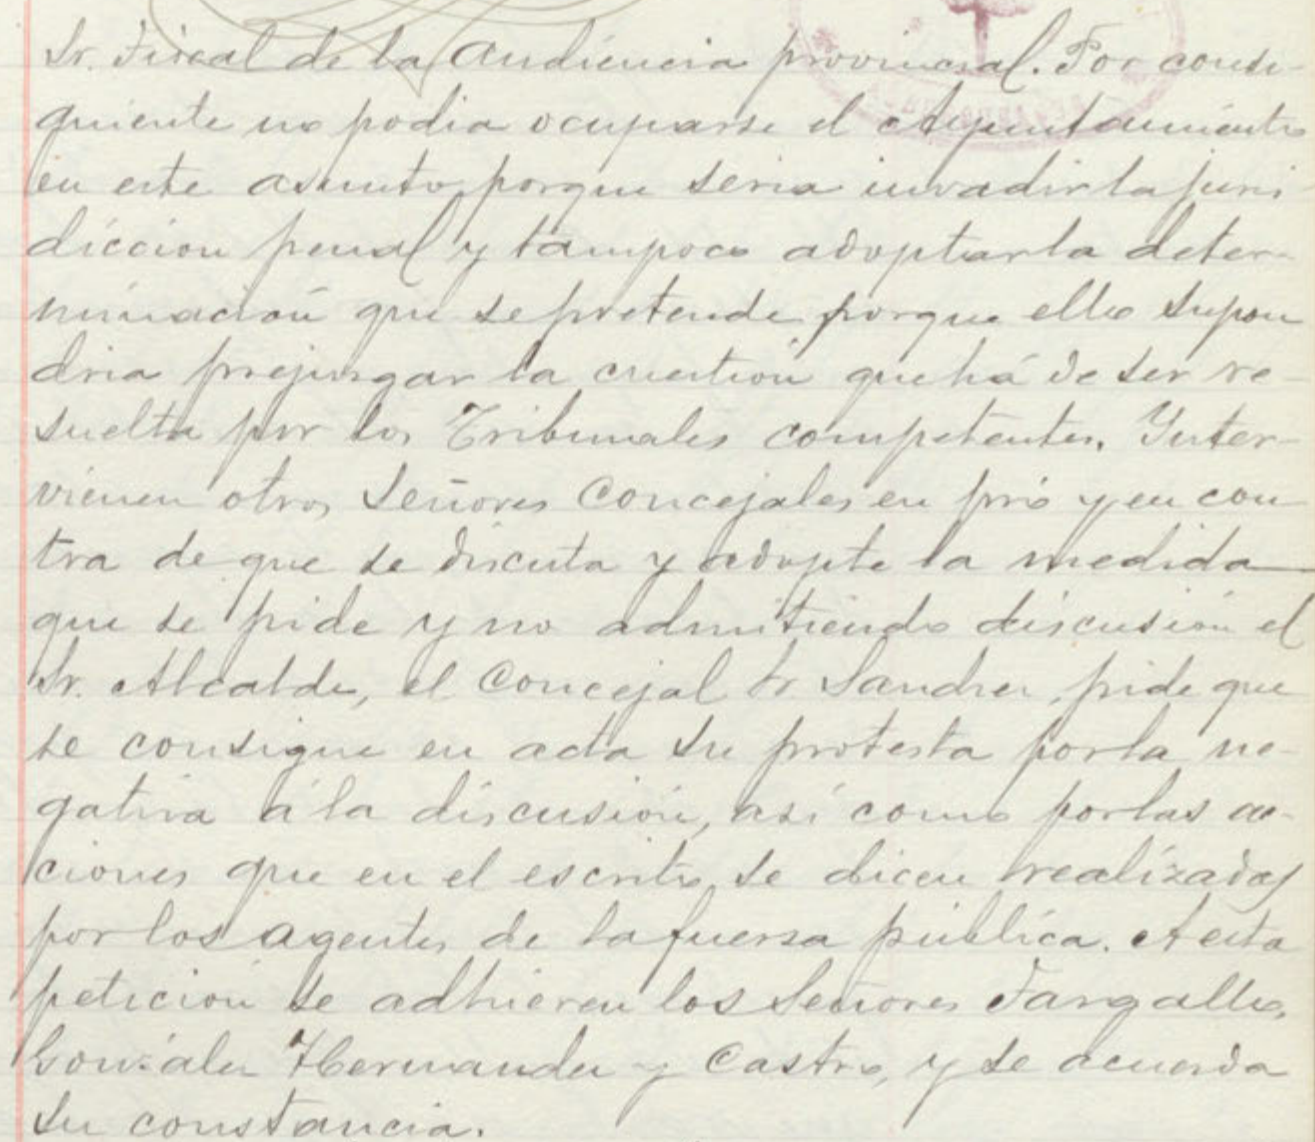 Sr. Fiscal de la Audiencia provincial. Por consi-
guiente no podia ocuparse el Ayuntamiento
en este asunto, porque seria invadir la juris
diccion penal y tampoco adoptar la deter-
minación que se pretende, porque ello supon
dria prejuzgar la cuestión que há de ser re-
suelta por los Tribunales competentes. Inter-
vienen otros Señores Concejales en pró y en con
tra de que se discuta y adopte la medida
que se pide y no admitiendo discusión el
Sr. Alcalde, el Concejal Sr Sandrer, pide que
se consigne en acta su protesta por la ne-
gativa á la discusión, así como por las ac-
ciones que en el escrito se dicen realizadas
por los agentes de la fuersa pública. A esta
petición se adhieren los Señores Fargallo,
Gonzalez Hernandez y Castro, y se acuerda
su constancia.